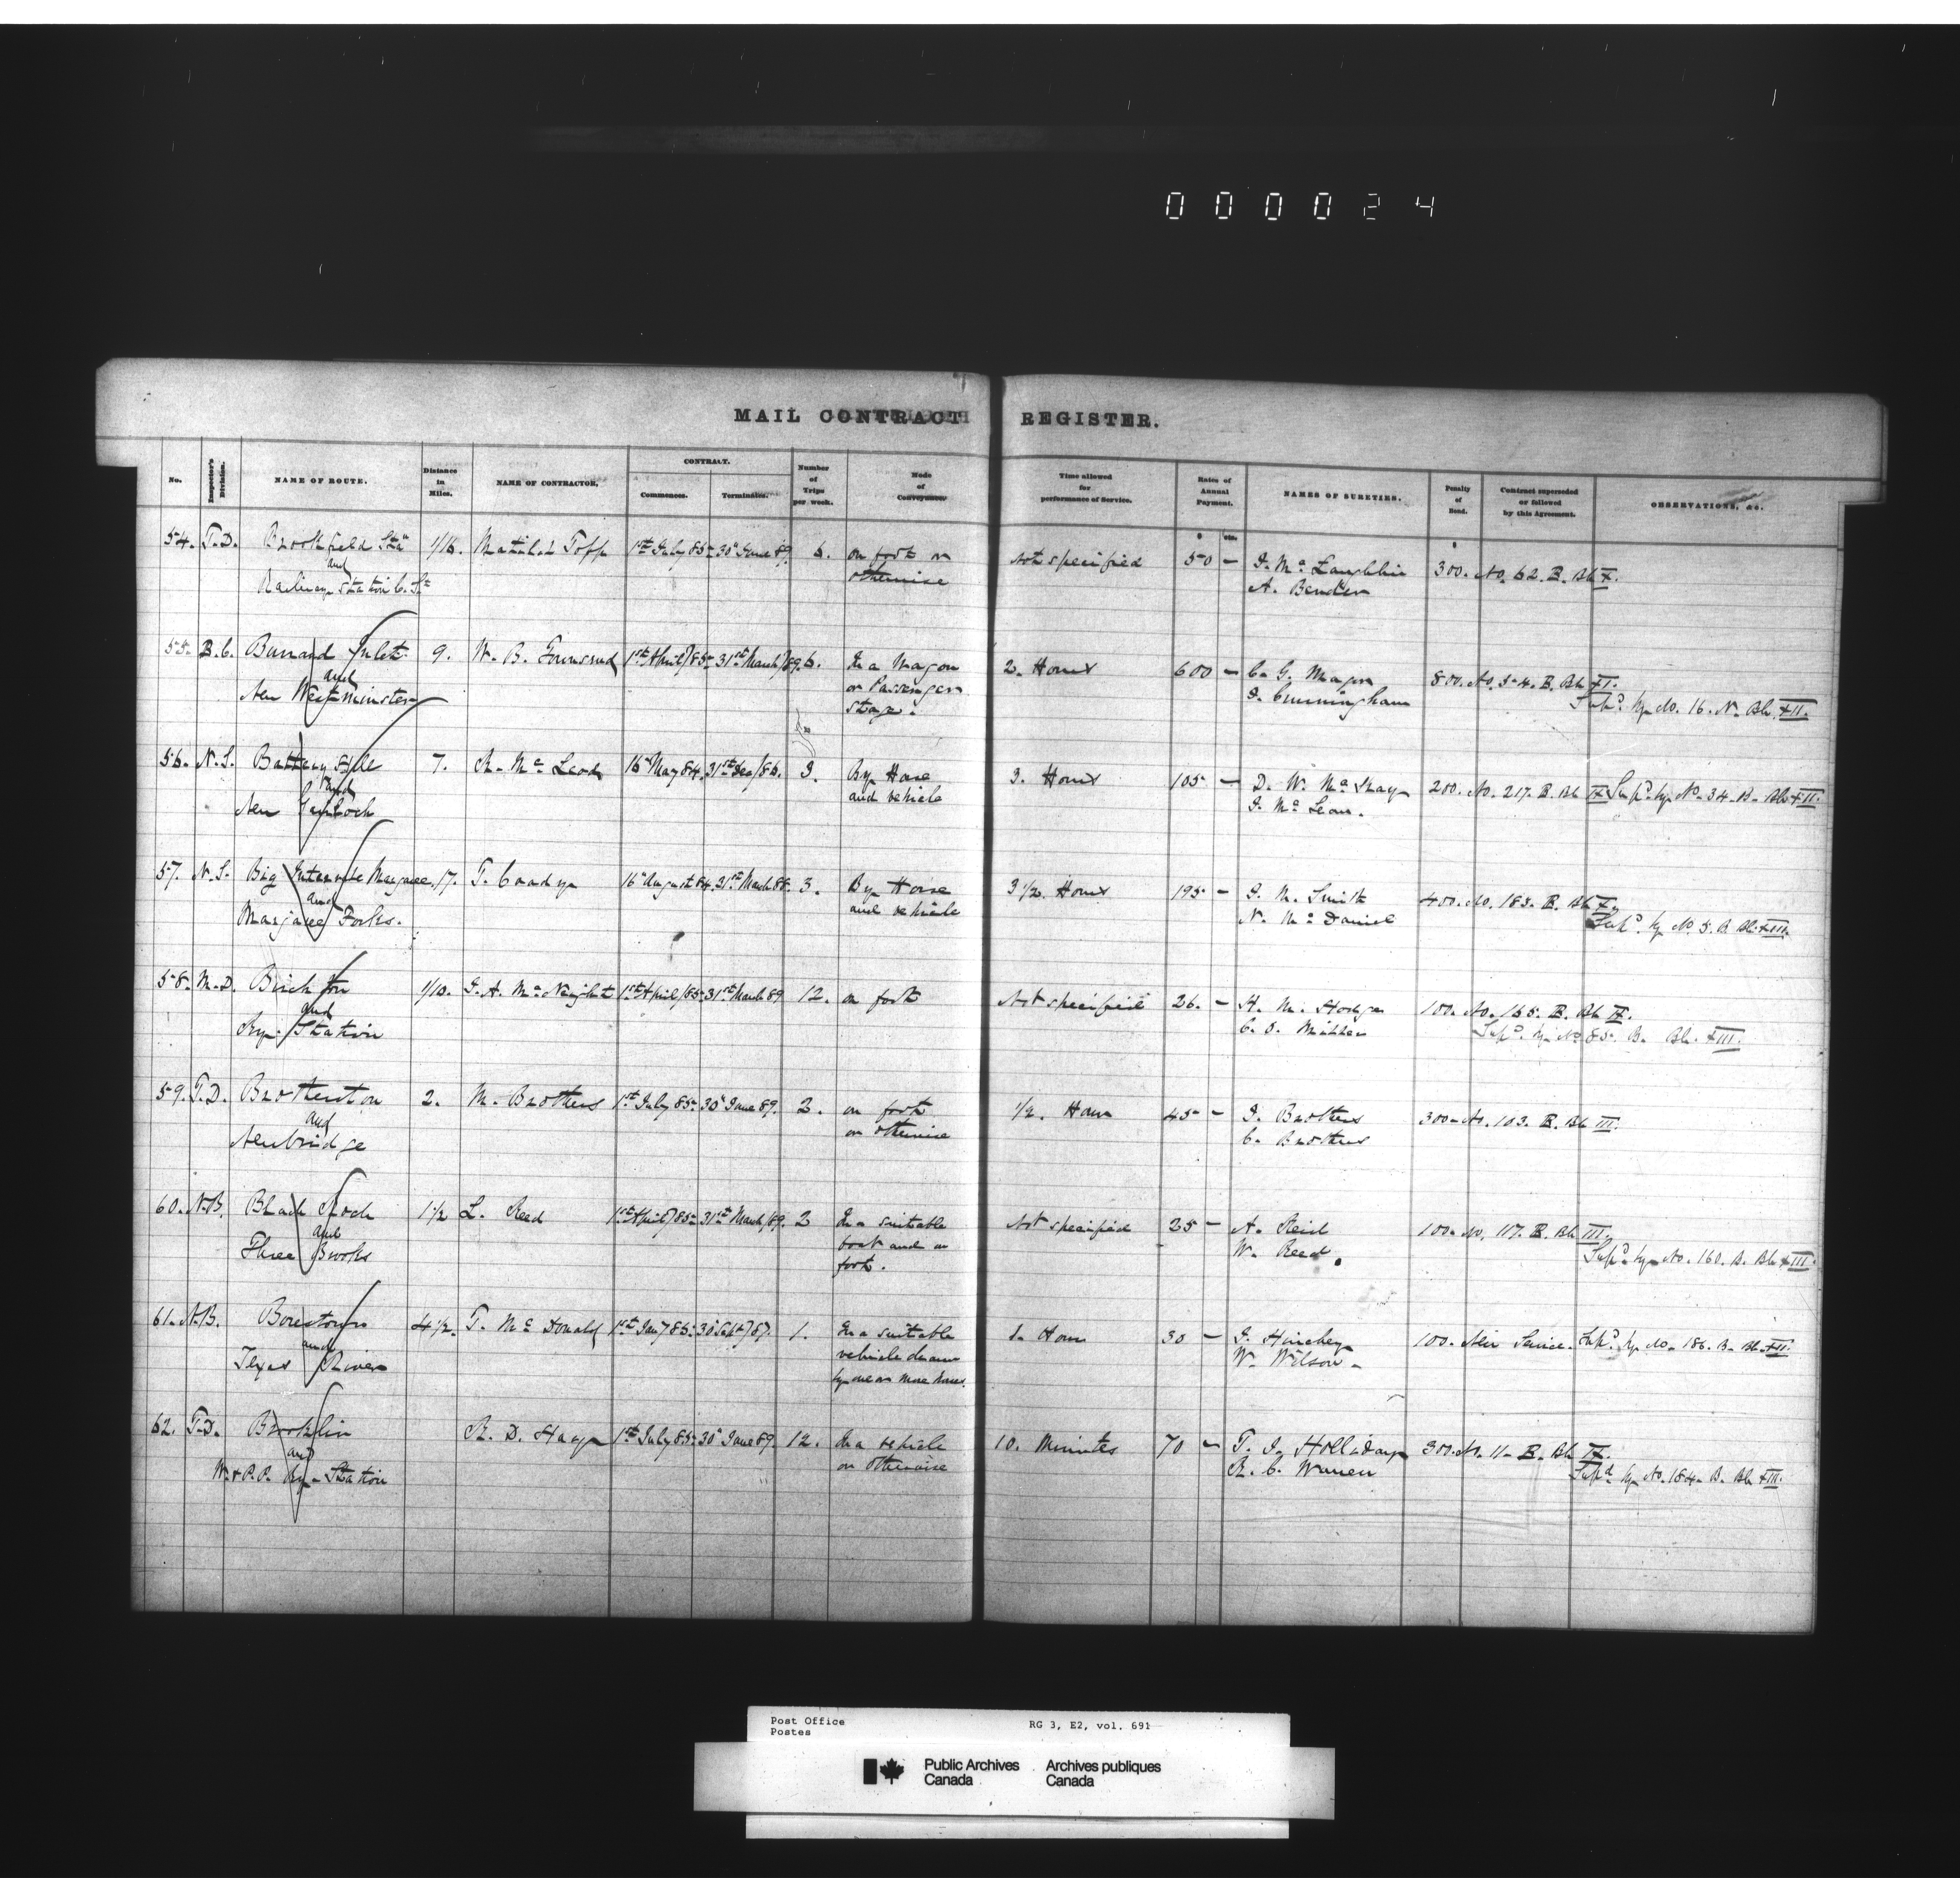 000024
MAIL CONTRACT REGISTER.
No. Inspector's Division. NAME OF ROUTE. Distance in Miles. NAME OF CONTRACTOR. CONTRACT. Commences. Terminates. Number of Trips per week. Mode of Conveyance. Time allowed for performance of Service. Rates of Annual Payment. NAMES OF SURETIES. Penalty of Bond. Contract superseded or followed by this Agreement. OBSERVATIONS, &c.
$ cts. $
54. T.D. Brookfield Stan 1/16. Matilda Topp 1st July 85 30" June 89. 6. on foot or not specified 50 - J. Mc Laughlin 300. No. 62. B. Bk X.
and otherwise A. Bender
Railway Station C. St
55. B.C. Burrard Inlet 9. W. B. Townsend 1st April/85 31st March/89. 6. In a Wagon 2. Hours 600 - C. G. Major 800. No. 54. B. Bk XI.
and or Passenger J. Cunningham Supd. by No. 16. N. Bk XII.
New Westminster stage.
56. N.S. Battery Hill 7. A. Mc Leod 16" May 84. 31st Dec/86. 3. By Horse 3. Hours 105 - D. W. Mc Kay 200. No. 217. B. Bk IX Supd. by No. 34. B. Bk XII.
and and vehicle J. Mc Lean.
New Gairloch
57. N.S. Big Intervale Margaree 17. T. Coady 16" August 84. 31st March 88. 3. By Horse 3 1/2. Hours 195 - J. M. Smith 400. No. 183. B. Bk X.
and and vehicle N. Mc Daniel Supd. by No. 5. B. Bk XIII.
Margaree Forks.
58. M.D. Birchton 1/10. G. A. Mc Naught 1st April/85 31st March 89 12. on foot Not specified 26. - H. M. Hodge 100. No. 155. B. Bk IX.
and C. S. Miller Supd. by No 85. B. Bk. XIII.
Ry. Station
59. T.D. Brotherston 2. M. Brothers 1st July 85 30" June 89. 2. on foot 1/2. Hour 45 - J. Brothers 300. No. 103. B. Bk III.
and or otherwise C. Brothers
Newbridge
60. N.B. Black Rock 1 1/2 L. Reed 1st April/85 31st March/89. 2 In a suitable Not specified 25 - A. Reid 100. No. 117. B. Bk III.
and boat and on W. Reed. Supd. by No. 160. B. Bk XIII.
Three Brooks foot.
61. N.B. Boiestown 4 1/2. T. Mc Donald 1st Jany 85 30" Sept/87. 1. In a suitable 1. Hour 30 - J. Hinchey 100. New Service. Supd. by No. 186. B. Bk XII.
and vehicle drawn W. Wilson -
Texas River by one or more horses.
62. T.D. Brooklin R. D. Hay 1st July 85 30" June 89. 12. In a vehicle 10. Minutes 70 - T. J. Holliday 300. No. 11. B. Bk IX.
and or otherwise R. C. Warren Supd by No. 184. B. Bk XIII.
W. & P.P. Ry. Station
Post Office RG 3, E2, vol. 691
Postes
Public Archives Archives publiques
Canada Canada